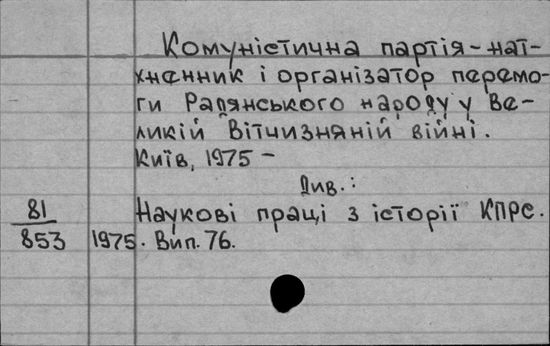 Комуністична партія-нат-
хненник і організатор перемо-
ги Радянського народу у Ве-
ликій Вітчизняній війні.
Київ, 1975 -
Див.:
81 Наукові праці з історії КПРС.
853 1975. Вип. 76.